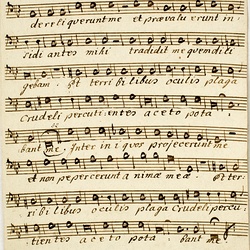 derelique runt me et prævalu erunt in
sidi antes mihi tradidit me quem dili
gebam. Et terri bi libus oculis plaga
Crudeli percutientes aceto pota
bant me. Inter in i quos projecerunt me
et non pepercerunt animæ meæ. Et ter
ri bi libus oculis plaga Crudeli percu
tientes aceto pota bant me